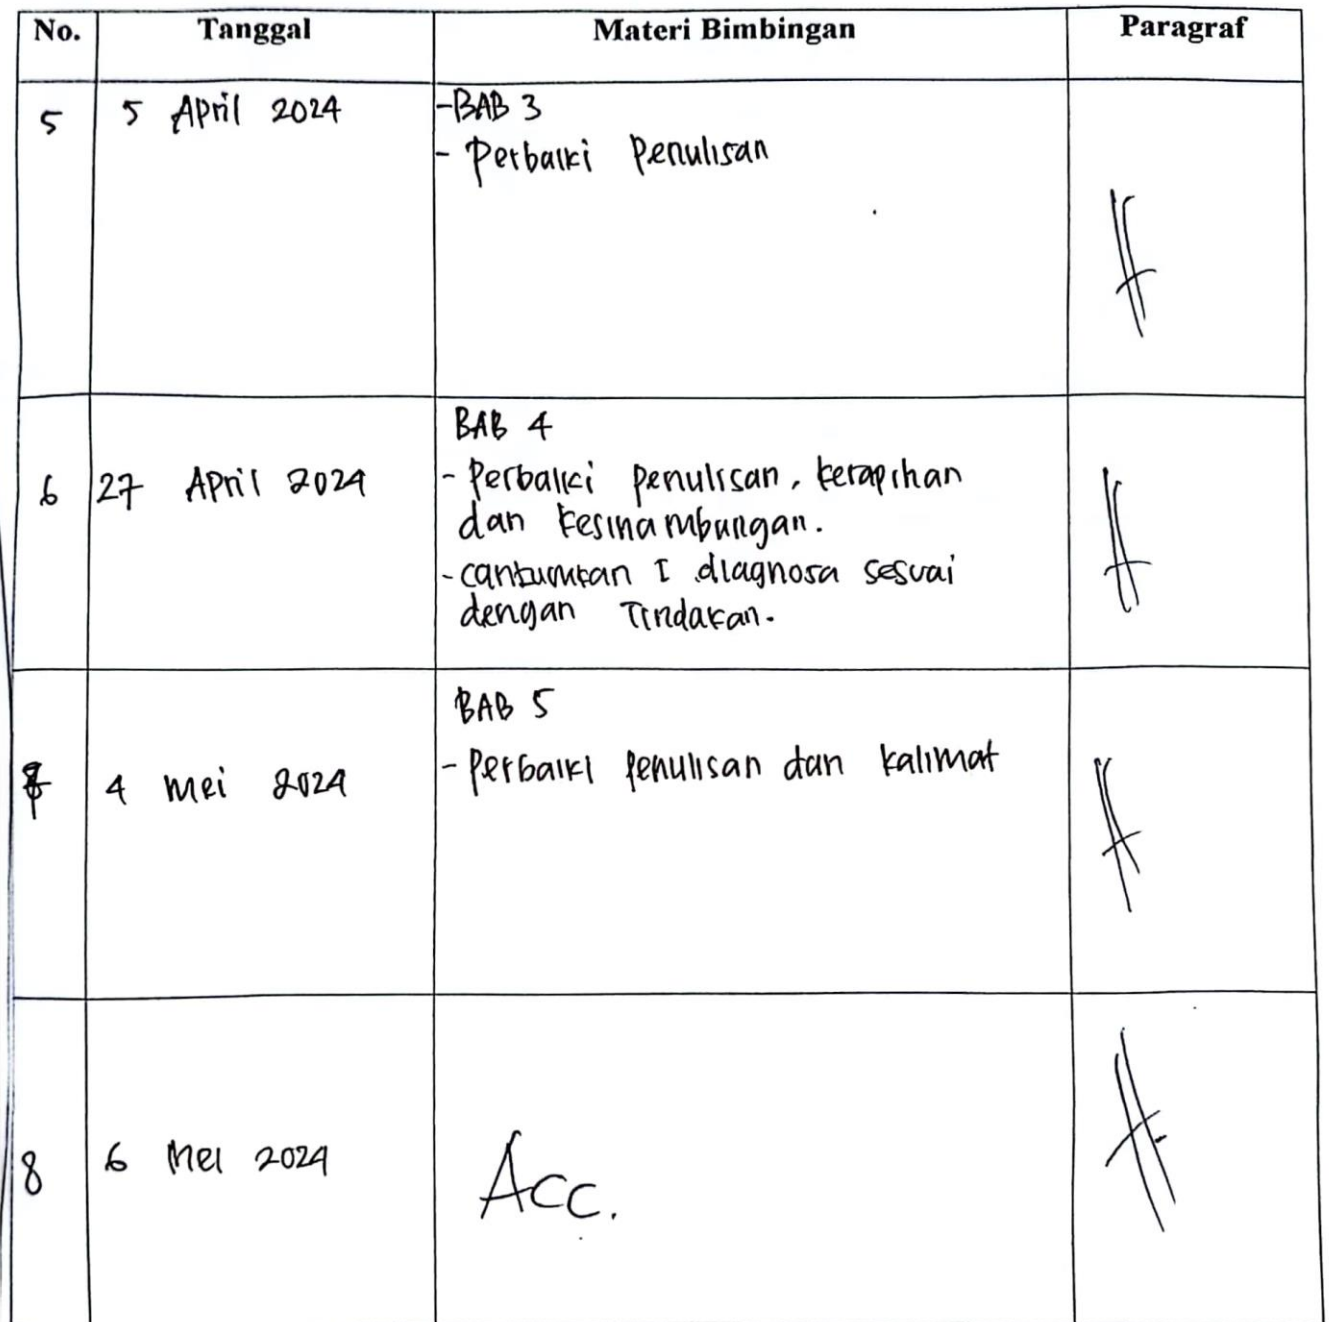 No. Tanggal Materi Bimbingan Paragraf
5 5 April 2024 -BAB 3
- Perbaiki Penulisan
BAB 4
6 27 April 2024 - Perbaiki penulisan, kerapihan
dan kesinambungan.
- cantumkan 1 diagnosa sesuai
dengan Tindakan.
BAB 5
7 4 Mei 2024 - Perbaiki penulisan dan kalimat
8 6 Mei 2024 Acc.